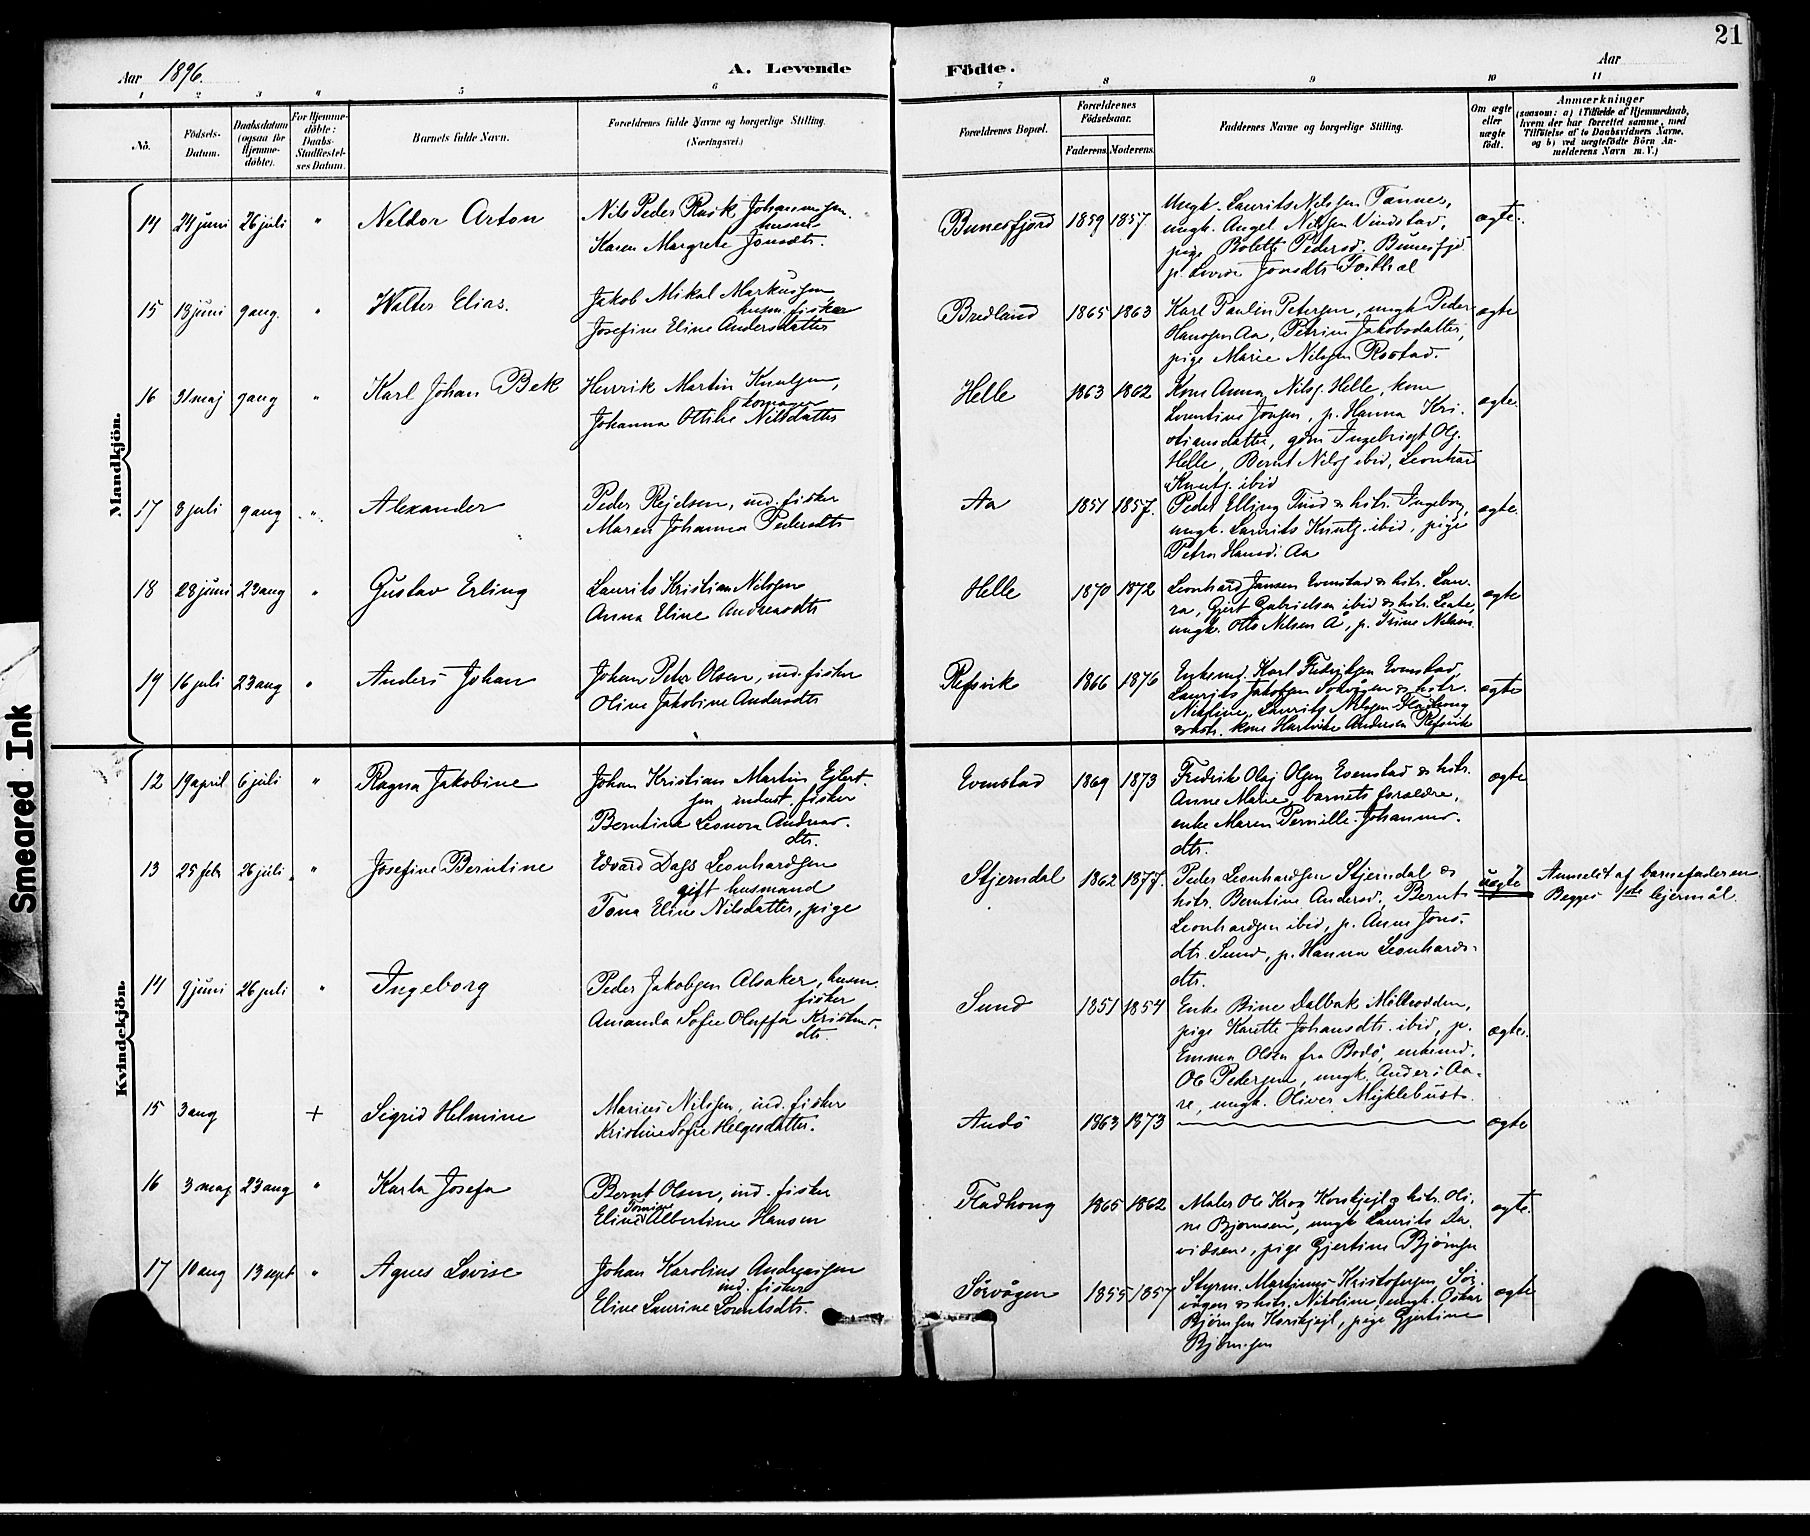 21
Aar 1896.
A. Levende Födte.
Aar
1 2 3 4 5 6 7 8 9 10 11
No.
Födsels-Datum.
Daabsdatum (ogsaa for Hjemme-döbte).
For Hjemme-döbte: Daabs-Stadfæstel-ses Datum.
Barnets fulde Navn.
Forældrenes fulde Navne og borgerlige Stilling.
(Næringsvei.)
Forældrenes Bopæl.
Forældrenes Födselsaar.
Faderens. Moderens.
Faddernes Navne og borgerlige Stilling.
Om ægte eller uægte födt.
Anmærkninger
(saasom: a) i Tilfælde af Hjemmedaab,
hvem der har forrettet samme, med
Tilföielse af to Daabsvidners Navne,
og b) ved uægtefödte Börn An-
melderens Navn m. V.)
Mandkjön.
14 24 juni 26 juli " Neldor Arton
Nils Peder Rask Johannessen
husm
Karen Margrete Jonsdtr.
Bunesfjord 1859 1857
Ungk. Laurits Nilssen Tennes,
ungk. Angel Nilssen Vindstad,
pige Bolette Pedersd. Bunesfjd
ægte.
15 13 juni 9 aug. " Walter Elias.
Jakob Mikal Markussen
husm. fisker
Josefine Eline Andersdatter
Bredland 1865 1863
Karl Paulin Petersen, ungk Peder
Hansen Aa, Petrine Jakobsdatter,
pige Marie Nilssen Rostad.
ægte
16 31 maj 9 aug " Karl Johan Bek
Henrik Martin Knutsen,
Johanna Ottilie Nilsdatter
Helle 1863 1862
Kone Anna Nilss. Helle, kone
Lorentine Jonsen, p. Hanna Kri-
stiansdatter, gdm Ingebrigt Ols.
Helle, Bernt Nilss ibid, Leonhard
Knuts. ibid
ægte.
17 3 juli 9 aug " Alexander
Peder Rejelsen, ind. fisker
Maren Johanna Pedersdtr
Aa 1851 1857.
Peder Elling Tind & hstr. Ingeborg,
ungk. Laurits Knuts. ibid, pige
Petra Hansd. Aa
ægte.
18 28 juni 23 aug " Gustav Erling
Laurits Kristian Nilssen
Anna Eline Andreasdtr
Helle 1870 1872
Leonhard Jansen Evenstad & hstr. Lau-
ra, Gjert Gabrielsen ibid & hstr. Leate,
ungk. Otto Nilsen Å, p. Trine Nilsen.
ægte
19 16 juli 23 aug " Anders Johan
Johan Peter Olsen, ind. fisker
Oline Jakobine Andersdtr
Refsvik 1866 1876
Enkemd. Karl Fredriksen Evenstad,
Laurits Jakobsen Sörvågen & hstr.
Nikoline, Laurits Nilssen Fladhong
& hstr. kone Hartvike Andersen Refsvik
ægte
Kvindekjön.
12 19 april 6 juli " Ragna Jakobine
Johan Kristian Martin Ejlert-
sen, inderst. fisker
Berntine Leonora Andreas-
dtr.
Evenstad 1869 1873
Fredrik Olaj Olsen Evenstad & hstr.
Anne Marie, barnets forældre,
enke Maren Pernille Johannes-
dtr.
ægte
13 25 febr 26 juli " Josefine Berntine
Edvard Dags Leonhardsen
gift husmand
Tona Eline Nilsdatter, pige
Stjerndal 1862 1877.
Peder Leonhardsen Stjerndal &
hstr. Berntine Andersd, Bernt
Leonhardsen ibid, p. Anne Jons-
dtr. Sund, p. Hanna Leonhards-
dtr.
uægte
Anmeldt af barnefaderen
Begges 1ste lejermål.
14 9 juni 26 juli " Ingeborg
Peder Jakobsen Alsaker, husm.
fisker
Amanda Sofie Oluffa Kristens-
dtr.
Sund 1851 1854
Enke Bine Dalbak Mölleodden,
pige Karette Johansdtr. ibid, p.
Emma Olsen fra Bodö, enkemd.
Ole Pedersen, ungk. Anders Aa-
re, ungk. Oliver Myklebust.
ægte.
15 3 aug + Sigrid Helmine
Marius Nilssen, ind. fisker
Kristine Sofie Helgesdatter.
Andö 1863 1873
ægte
16 3 maj 23 aug " Karla Josefa
Bernt Olsen, ind. fisker
Eline Albertine Hansen
Fladhong 1865 1862
Maler Ole Krog Korshejl & hstr. Oli-
ne Bjørnsen, ungk Laurits Da-
vidsen, pige Gjertine Bjørnsen
ægte.
17 10 aug 13 sept " Agnes Lovise
Johan Karolius Andreassen
ind. fisker
Eline Laurine Lorentsdtr.
Sörvågen 1855 1857
Styrm. Martinus Kristofersen Sör-
vågen & hstr. Nikoline, ungk. Oskar
Bjørnsen Korshejl, pige Gjertine
Bjørnsen
ægte
Smeared Ink